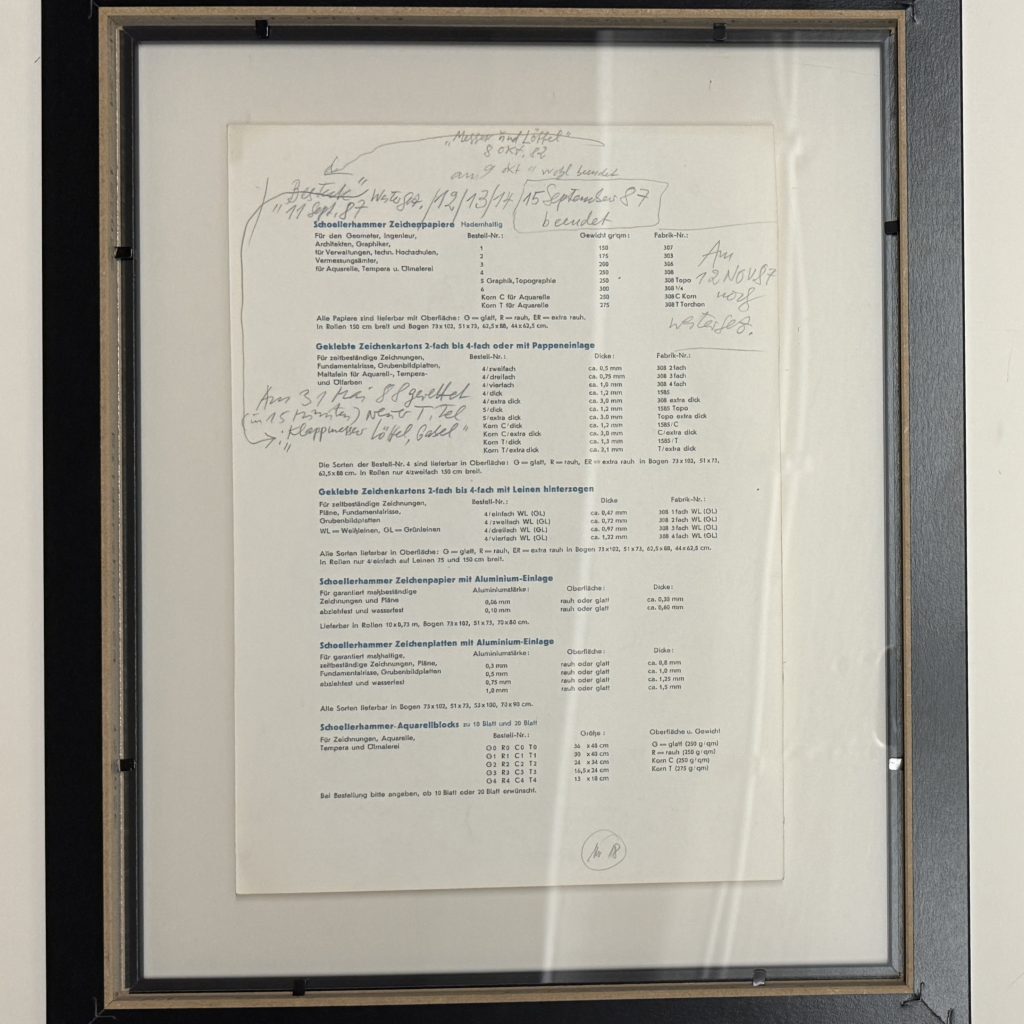 „Messer und Löffel"
8 Okt. 82
am 9 okt " wohl beendet
„Besteck" weiterges. /12/13/14/ 15 September 87
11 Sept. 87 beendet
Schoellerhammer Zeichenpapiere Hadernhaltig
Für den Geometer, Ingenieur, Bestell-Nr.: Gewicht gr/qm: Fabrik-Nr.:
Architekten, Graphiker, 1 150 307
für Verwaltungen, techn. Hochschulen, 2 175 303
Vermessungsämter, 3 200 306
für Aquarelle, Tempera u. Ölmalerei 4 250 308
5 Graphik, Topographie 250 308 Topo
6 300 308 5/4
Korn C für Aquarelle 250 308 C Korn
Korn T für Aquarelle 275 308 T Torchon
Am
12 NOV 87
noch
weiterges.
Alle Papiere sind lieferbar mit Oberfläche: G = glatt, R = rauh, ER = extra rauh.
In Rollen 150 cm breit und Bogen 73x102, 51x73, 62,5x88, 44x62,5 cm.
Geklebte Zeichenkartons 2-fach bis 4-fach oder mit Pappeneinlage
Für zeitbeständige Zeichnungen, Bestell-Nr.: Dicke: Fabrik-Nr.:
Fundamentalrisse, Grubenbildplatten, 4/zweifach ca. 0,5 mm 308 2fach
Maltafeln für Aquarell-, Tempera- 4/dreifach ca. 0,75 mm 308 3fach
und Ölfarben 4/vierfach ca. 1,0 mm 308 4fach
4/dick ca. 1,2 mm 1585
4/extra dick ca. 3,0 mm 308 extra dick
5/dick ca. 1,2 mm 1585 Topo
5/extra dick ca. 3,0 mm Topo extra dick
Korn C/dick ca. 1,2 mm 1585/C
Korn C/extra dick ca. 3,0 mm C/extra dick
Korn T/dick ca. 1,3 mm 1585/T
Korn T/extra dick ca. 3,1 mm T/extra dick
Am 31 Mai 88 gerettet
(in 15 Minuten) neuer Titel
„Klappmesser Löffel, Gabel"
Die Sorten der Bestell-Nr. 4 sind lieferbar in Oberfläche: G = glatt, R = rauh, ER = extra rauh in Bogen 73x102, 51x73,
62,5x88 cm. In Rollen nur 4/zweifach 150 cm breit.
Geklebte Zeichenkartons 2-fach bis 4-fach mit Leinen hinterzogen
Für zeitbeständige Zeichnungen, Bestell-Nr.: Dicke Fabrik-Nr.:
Pläne, Fundamentalrisse, 4/einfach WL (GL) ca. 0,47 mm 308 1fach WL (GL)
Grubenbildplatten 4/zweifach WL (GL) ca. 0,72 mm 308 2fach WL (GL)
WL = Weißleinen, GL = Grünleinen 4/dreifach WL (GL) ca. 0,97 mm 308 3fach WL (GL)
4/vierfach WL (GL) ca. 1,22 mm 308 4fach WL (GL)
Alle Sorten lieferbar in Oberfläche: G = glatt, R = rauh, ER = extra rauh in Bogen 73x102, 51x73, 62,5x88, 44x62,5 cm.
In Rollen nur 4/einfach auf Leinen 75 und 150 cm breit.
Schoellerhammer Zeichenpapier mit Aluminium-Einlage
Für garantiert maßbeständige Aluminiumstärke: Oberfläche: Dicke:
Zeichnungen und Pläne 0,06 mm rauh oder glatt ca. 0,30 mm
abziehfest und wasserfest 0,10 mm rauh oder glatt ca. 0,60 mm
Lieferbar in Rollen 10x0,73 m, Bogen 73x102, 51x73, 70x80 cm.
Schoellerhammer Zeichenplatten mit Aluminium-Einlage
Für garantiert maßhaltige, Aluminiumstärke: Oberfläche: Dicke:
zeitbeständige Zeichnungen, Pläne, 0,3 mm rauh oder glatt ca. 0,8 mm
Fundamentalrisse, Grubenbildplatten 0,5 mm rauh oder glatt ca. 1,0 mm
abziehfest und wasserfest 0,75 mm rauh oder glatt ca. 1,25 mm
1,0 mm rauh oder glatt ca. 1,5 mm
Alle Sorten lieferbar in Bogen 73x102, 51x73, 53x100, 70x90 cm.
Schoellerhammer-Aquarellblocks zu 10 Blatt und 20 Blatt
Für Zeichnungen, Aquarelle, Bestell-Nr.: Größe: Oberfläche u. Gewicht
Tempera und Ölmalerei G0 R0 C0 T0 36 x 48 cm G = glatt (250 g/qm)
G1 R1 C1 T1 30 x 40 cm R = rauh (250 g/qm)
G2 R2 C2 T2 24 x 34 cm Korn C (250 g/qm)
G3 R3 C3 T3 16,5 x 24 cm Korn T (275 g/qm)
G4 R4 C4 T4 13 x 18 cm
Bei Bestellung bitte angeben, ob 10 Blatt oder 20 Blatt erwünscht.
Nr 18